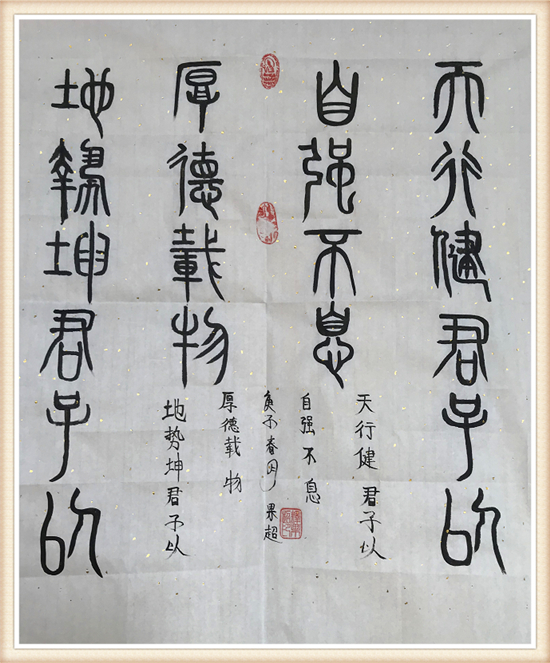 天行健君子以
自强不息
地勢坤君子以
厚德載物
天行健 君子以
自强不息
地势坤君子以
厚德载物
庚子春月 果超